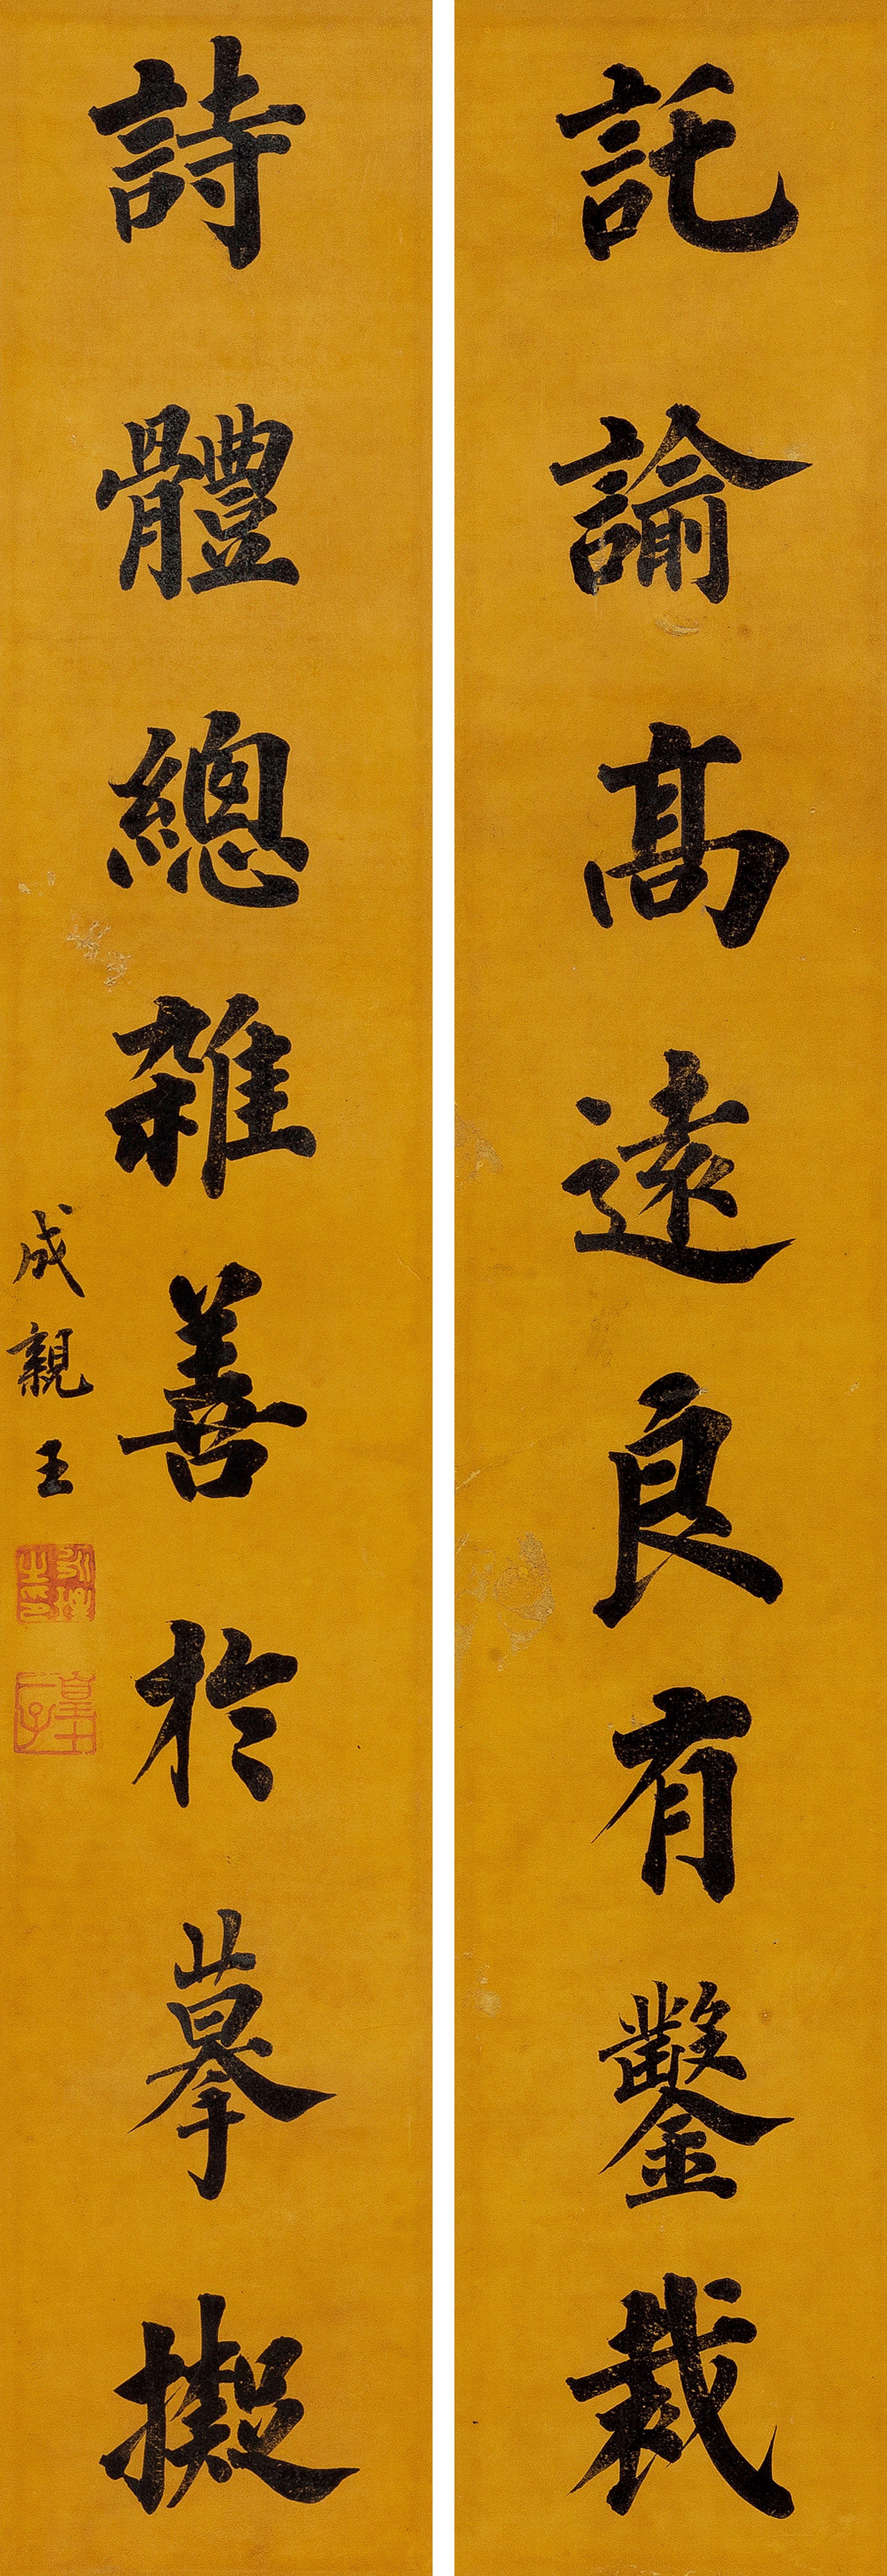 託諭高遠良有鑒裁
詩體總雜善於摹擬
成親王